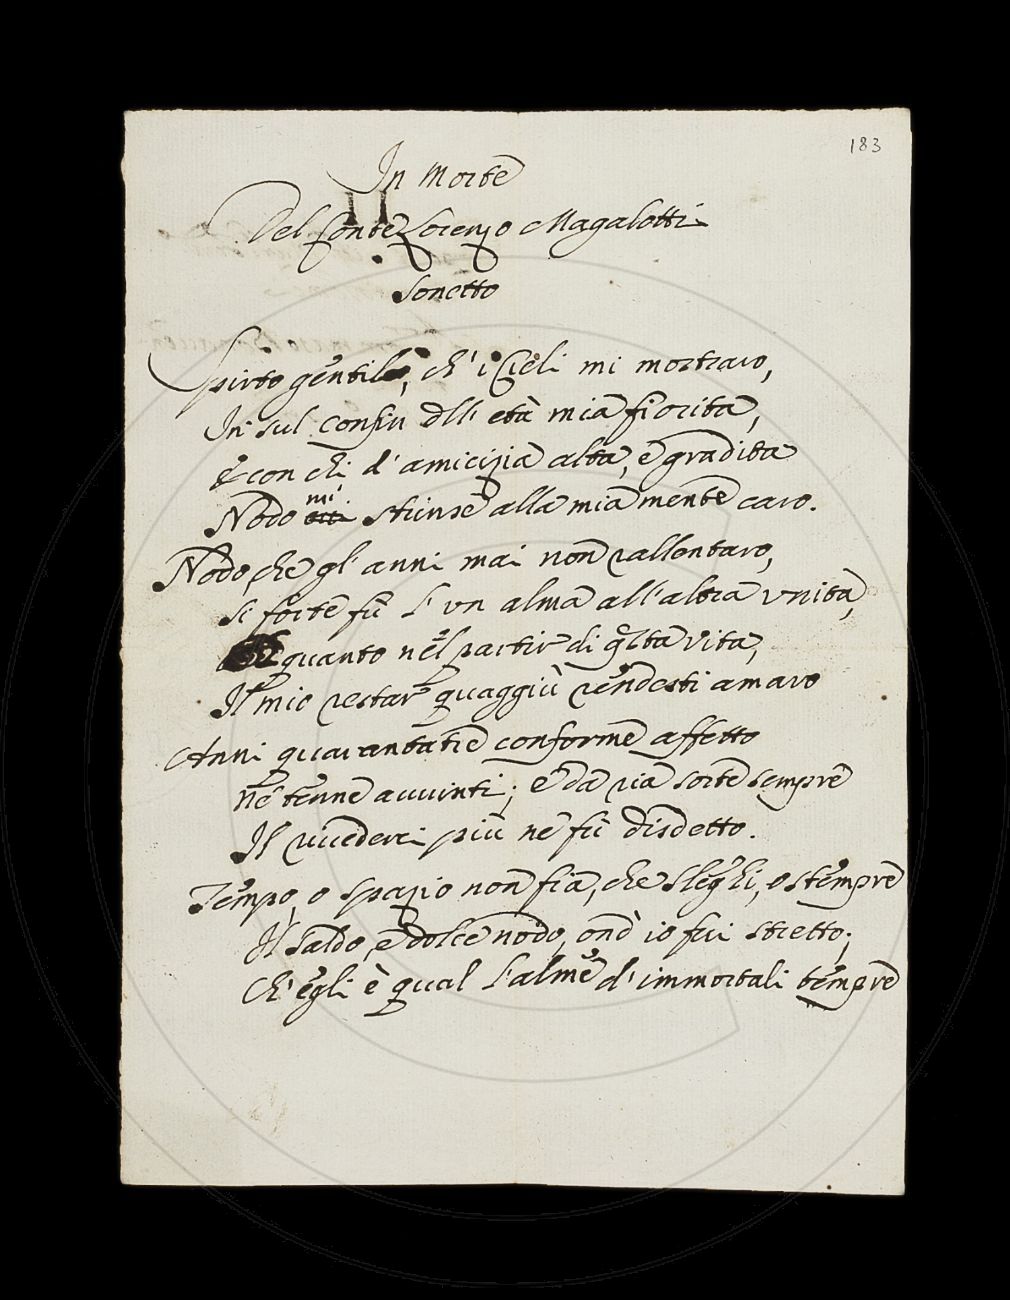 183
In Morte
Del Conte Lorenzo Magalotti
Sonetto
Spirto gentile, ch' i Cieli mi mostraro,
In sul confin dll' età mia fiorita,
E con chi d'amicizia alta, e gradita
Nodo mi strinse alla mia mente caro.
Nodo, che gl' anni mai non rallentaro,
Si forte fù l' un alma all' altra unita,
quanto nel partir di qsta vita,
Il mio restar quaggiù rendesti amaro
Anni quarantatre conforme affetto
ne tenne avvinti; e da ria sorte sempre
Il rivederci più ne fù disdetto.
Tempo, o spazio non fia, che sleghi, o stempre
Il saldo, e dolce nodo, ond' io fui stretto;
Ch' egli è qual l'alme d' immortali tempre